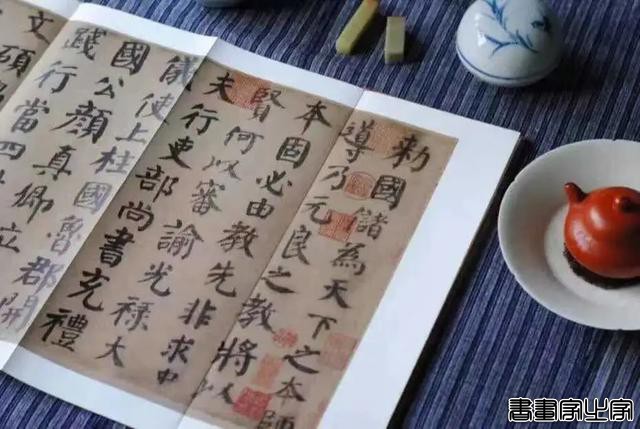 勅國儲為天下之本師
導乃元良之教將以
本固必由教先非求中
賢何以審諭光祿大
夫行吏部尚書充禮
儀使上柱國魯郡開
國公顏真卿立
踐行當四
文碩
書畫家